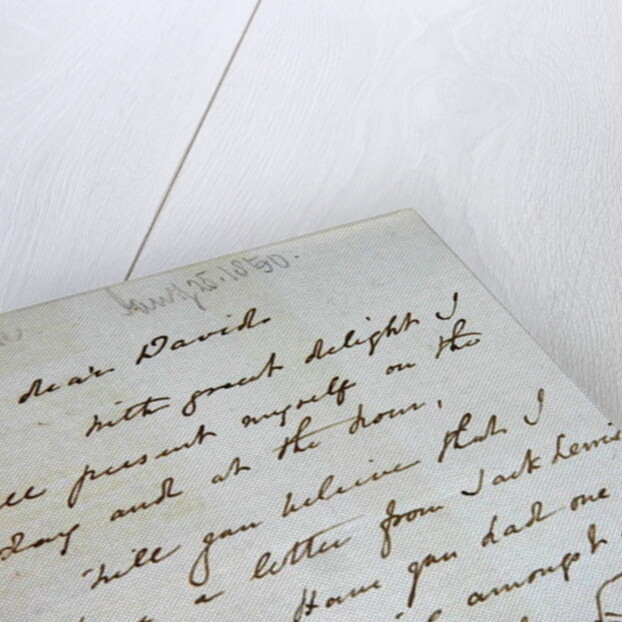 Jany 25. 1850.
dear David
with great delight I
present myself on the
day and at the hour,
Will you believe that I
a letter from Jack Lewis
Have you had one
amongst